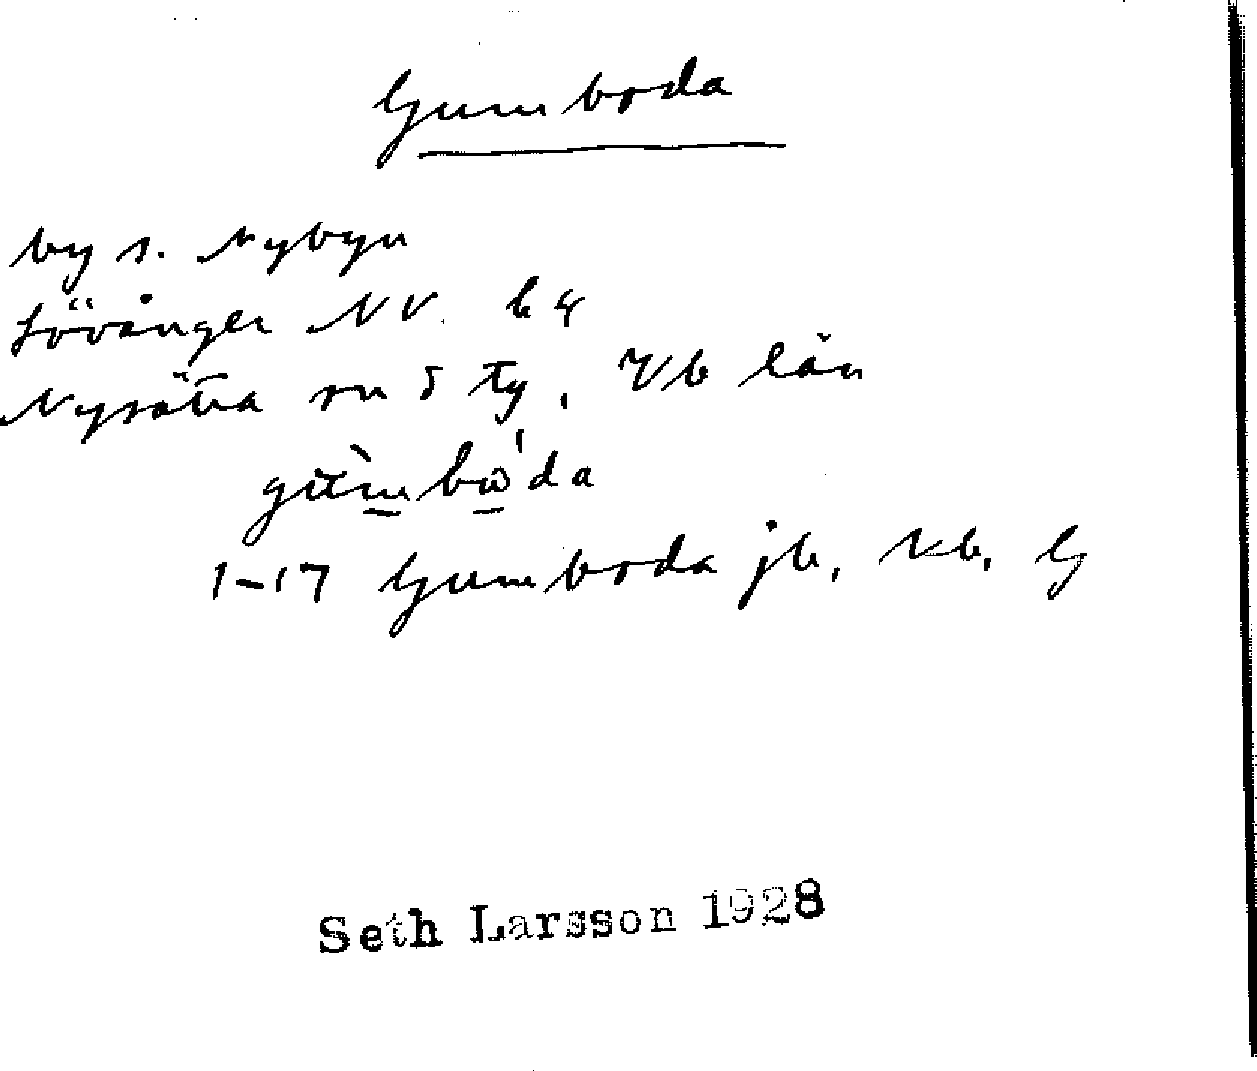 Gumboda
by s. Nybyn
Lövånger NV. bq
Nysätra sn o Ty, Vb län
gùmbωda
1-17 Gumboda jb, kb, G
Seth Larsson 1928